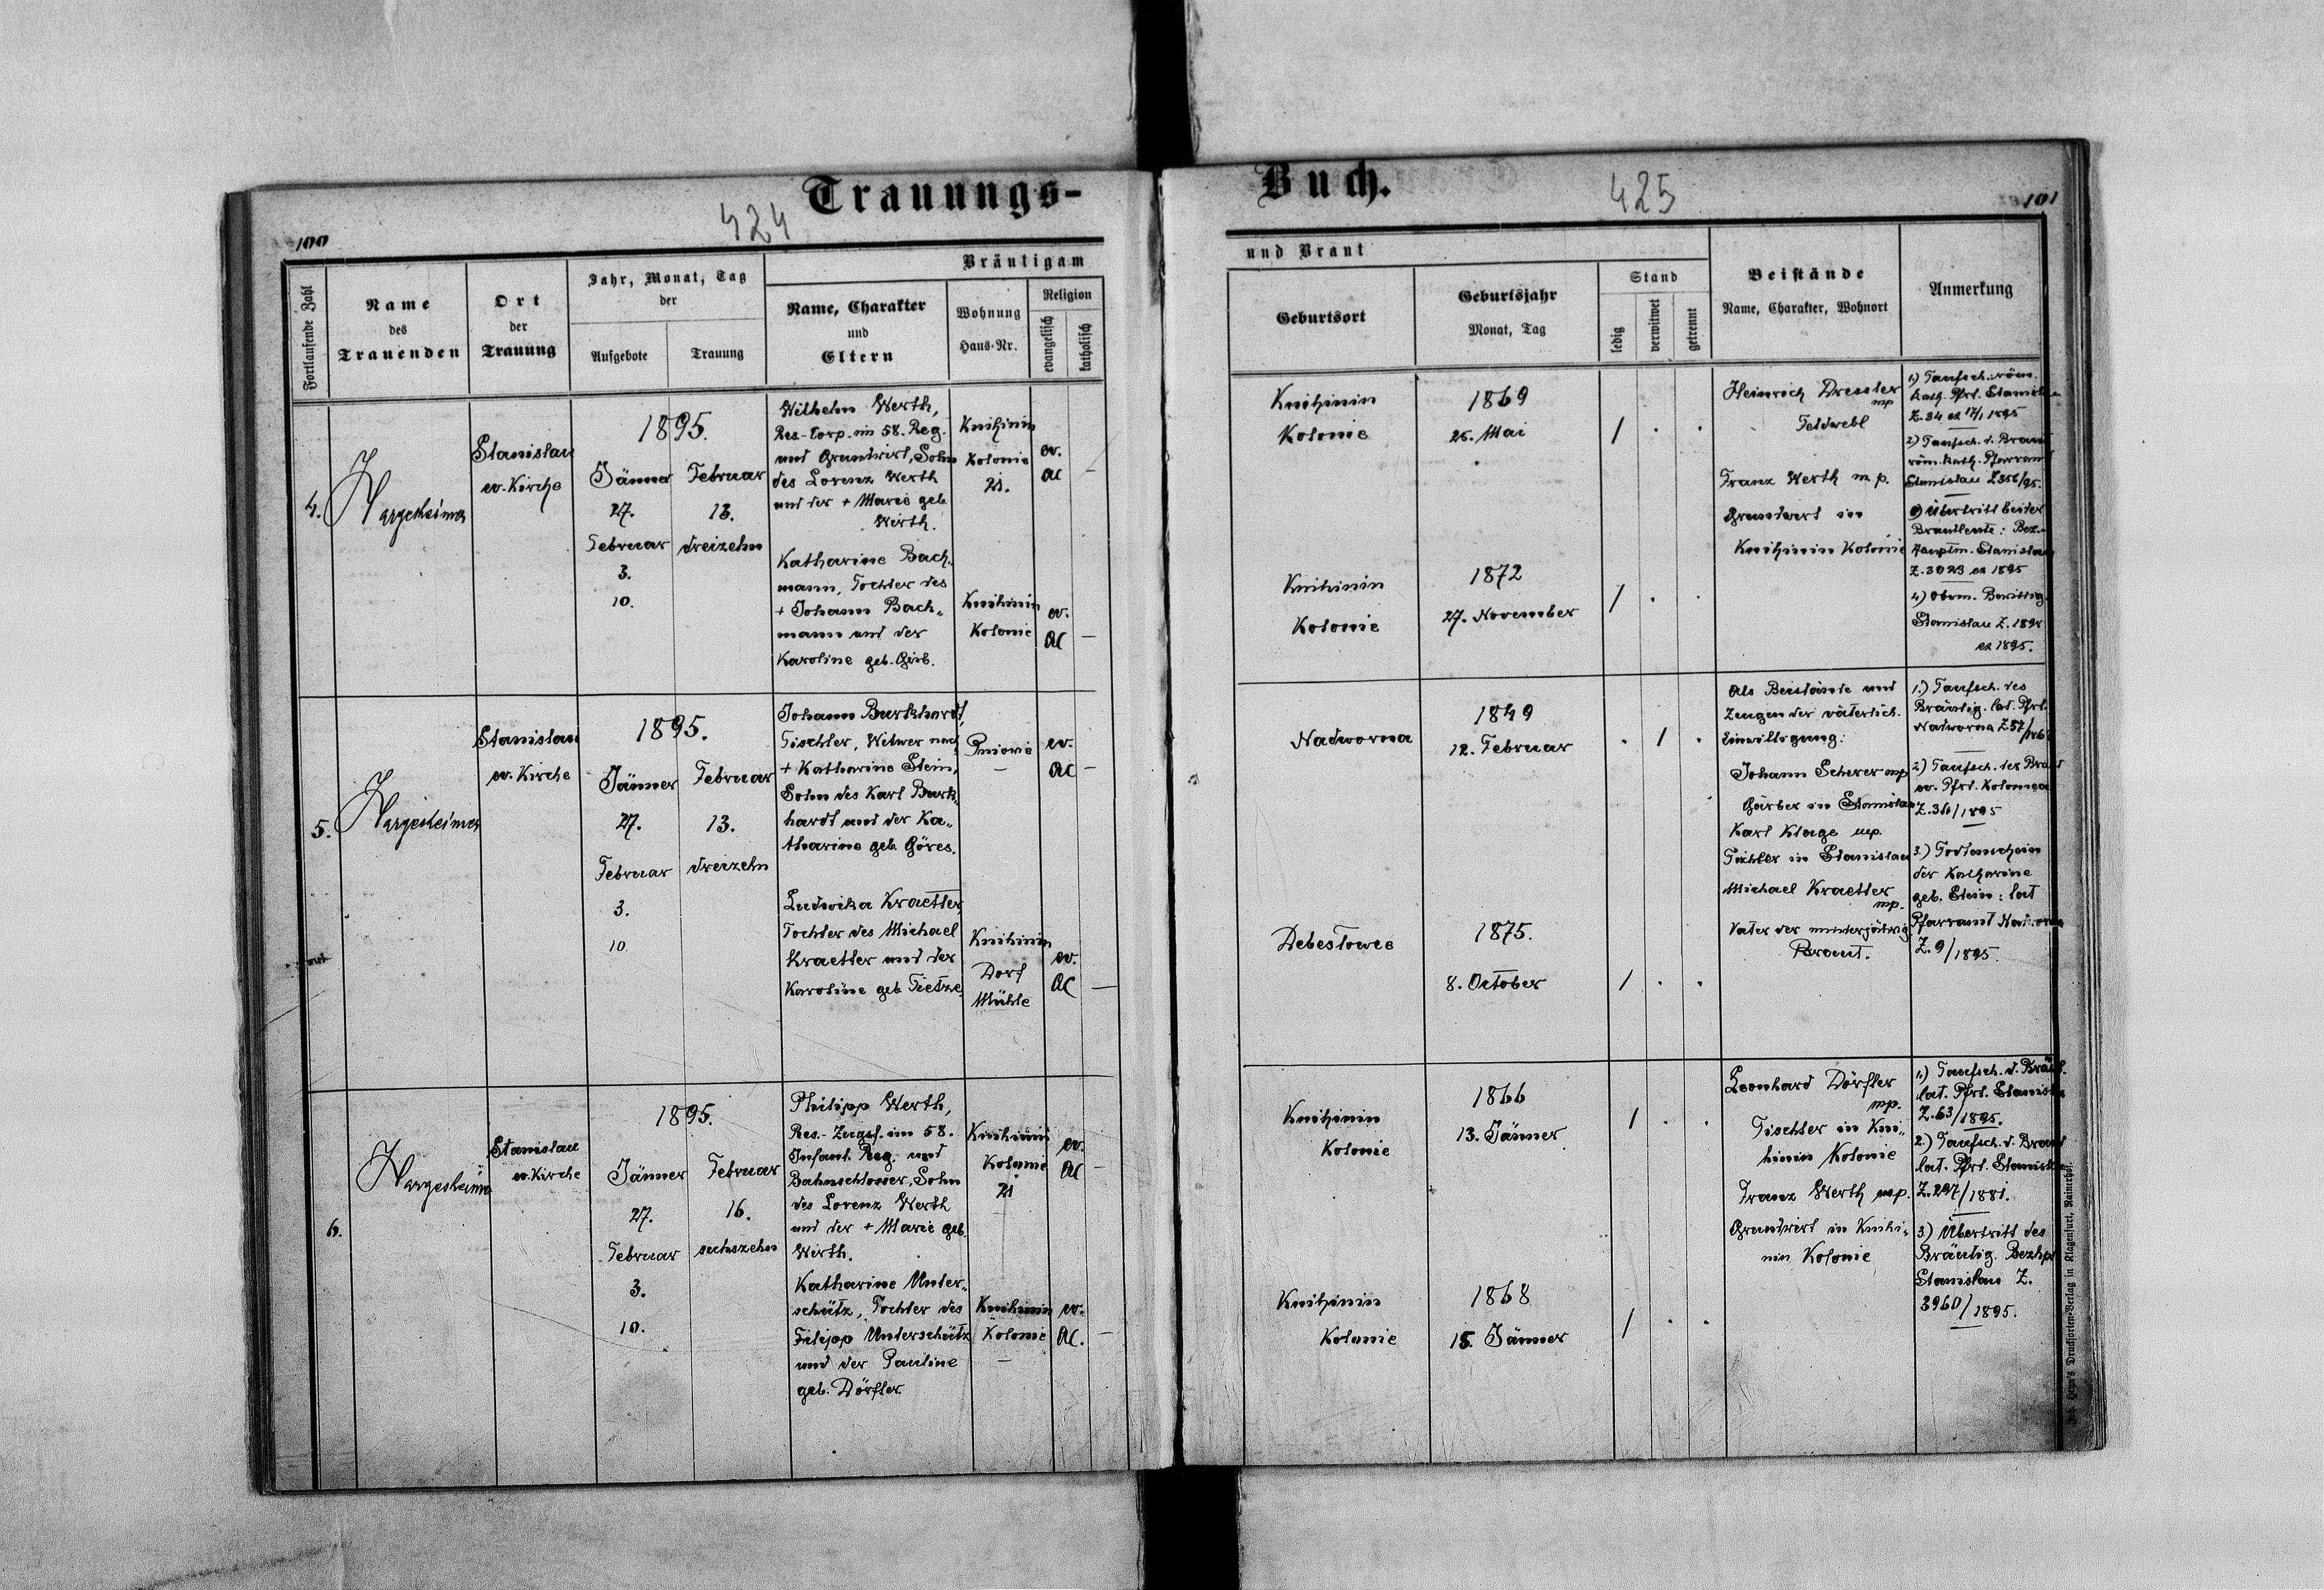 Trauungs-
424
100
Fortlaufende Zahl
Name
des
Trauenden
Ort
der
Trauung
Jahr, Monat, Tag
der
Aufgebote
Trauung
Bräutigam
Name, Charakter
und
Eltern
Wohnung
Haus-Nr.
Religion
evangelisch
katholisch
4.
Hargesheimer
Stanislau
ev. Kirche
1895.
Jänner
27.
Februar
3.
10.
Februar
13.
dreizehn
Wilhelm Werth,
Res-Corp. im 58. Reg.
und Grundwirt, Sohn
des Lorenz Werth
und der + Marie geb.
Werth.
Knihinin
Kolonie
21.
ev.
AC
—
Katharine Bach-
mann, Tochter des
+ Johann Bach-
mann und der
Karoline geb. Girb.
Knihinin
Kolonie
ev.
AC
—
5.
Hargesheimer
Stanislau
ev. Kirche
1895.
Jänner
27.
Februar
3.
10.
Februar
13.
dreizehn
Johann Burkhardt,
Tischler, Witwer nach
+ Katharine Stein,
Sohn des Karl Burk-
hardt und der Ka-
tharine geb. Göres.
Pniowie
—
ev.
AC
—
Ludwika Kraetter,
Tochter des Michael
Kraetter und der
Karoline geb. Tietze.
Knihinin
Dorf
Mühle
ev.
AC
—
6.
Hargesheimer
Stanislau
ev. Kirche
1895.
Jänner
27.
Februar
3.
10.
Februar
16.
sechszehn
Philipp Werth,
Res.-Zugsf. im 58.
Infant. Reg. und
Bahnschlosser, Sohn
des Lorenz Werth
und der + Marie geb.
Werth.
Knihinin
Kolonie
21
ev.
AC
—
Katharine Unter-
schütz, Tochter des
Filipp Unterschütz
und der Pauline
geb. Dörfler.
Knihinin
Kolonie
—
ev.
AC.
—
Buch.
425
101
und Braut
Geburtsort
Geburtsjahr
Monat, Tag
Stand
ledig
verwitwet
getrennt
Beistände
Name, Charakter, Wohnort
Anmerkung
Knihinin
Kolonie
1869
26. Mai
/ . .
Knihinin
Kolonie
1872
27. November
/ . .
Heinrich Dressler
mp
Feldwebl
Franz Werth mp.
Grundwirt in
Knihinin Kolonie
1) Taufsch. röm.
kath. Pfrt. Stanislau
Z. 34 ex 17/1 1895
2) Taufsch. d. Braut
röm. kath. Pfarramt
Stanislau Z 356/95.
3) Übertritt beider
Brautleute: Bez.-
Hauptm. Stanislau
Z. 3023 ex 1895
4) Obom. Bewillig.
Stanislau Z. 1894
ex 1895.
Nadworna
1849
12. Februar
. / .
Debeslowce
1875.
8. October
/ . .
Als Beistände und
Zeugen der väterlich.
Einwilligung:
Johann Scherer mp
Gärber in Stanislau
Karl Klage mp.
Tischler in Stanislau
Michael Kraetter
mp.
Vater der minderjährig.
Braut.
1.) Taufsch. des
Bräutig. lat. Pfrt.
Nadworna Z 57/186
2) Taufsch. der Braut
ev. Pfrt. Kolomea
Z. 36/1895
3.) Todtenschein
der Katharine
geb. Stein: lat
Pfarramt Nadworna
Z. 9/1895.
Knihinin
Kolonie
1866
13. Jänner
/ . .
Knihinin
Kolonie
1868
15. Jänner
/ . .
Leonhard Dörfler
mp.
Tischler in Kni-
hinin Kolonie
Franz Werth mp.
Grundwirt in Knihi-
nin Kolonie
1.) Taufsch. d. Bräut.
lat. Pfrt. Stanislau
Z. 63/1895.
2.) Taufsch. d. Braut
lat. Pfrt. Stanislau
Z. 297/1881.
3.) Übertritt des
Bräutig. Bezhpt
Stanislau Z.
3960/1895.
Joh. Heyn's Drucksorten-Verlag in Klagenfurt, Rainerhof.